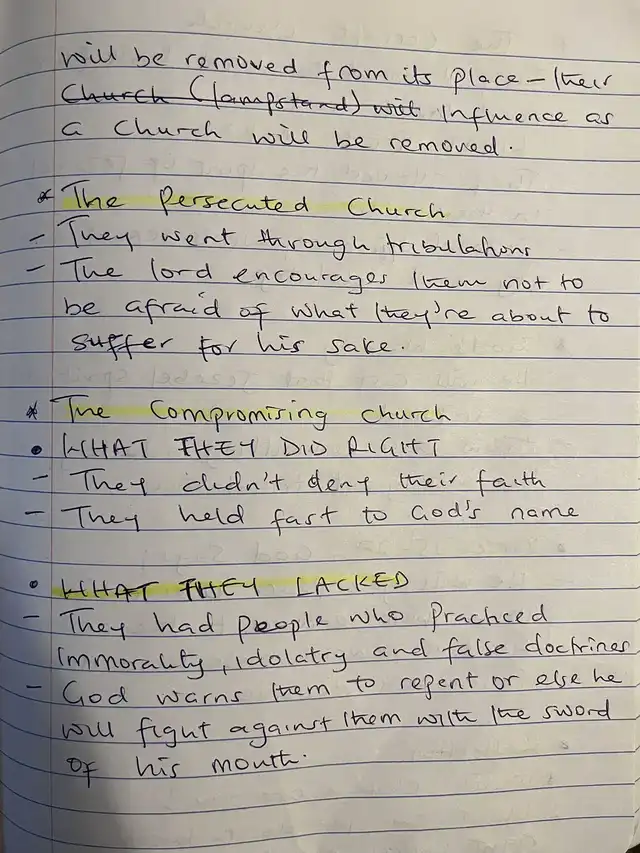 will be removed from its place – their
Church (lampstand) will influence as
a church will be removed.
* The Persecuted Church
- They went through tribulations
- The lord encourages them not to
be afraid of what they're about to
suffer for his sake.
* The Compromising church
• WHAT THEY DID RIGHT
- They didn't deny their faith
- They held fast to God's name
• WHAT THEY LACKED
- They had people who practiced
immorality, idolatry and false doctrines
- God warns them to repent or else he
will fight against them with the sword
of his mouth.